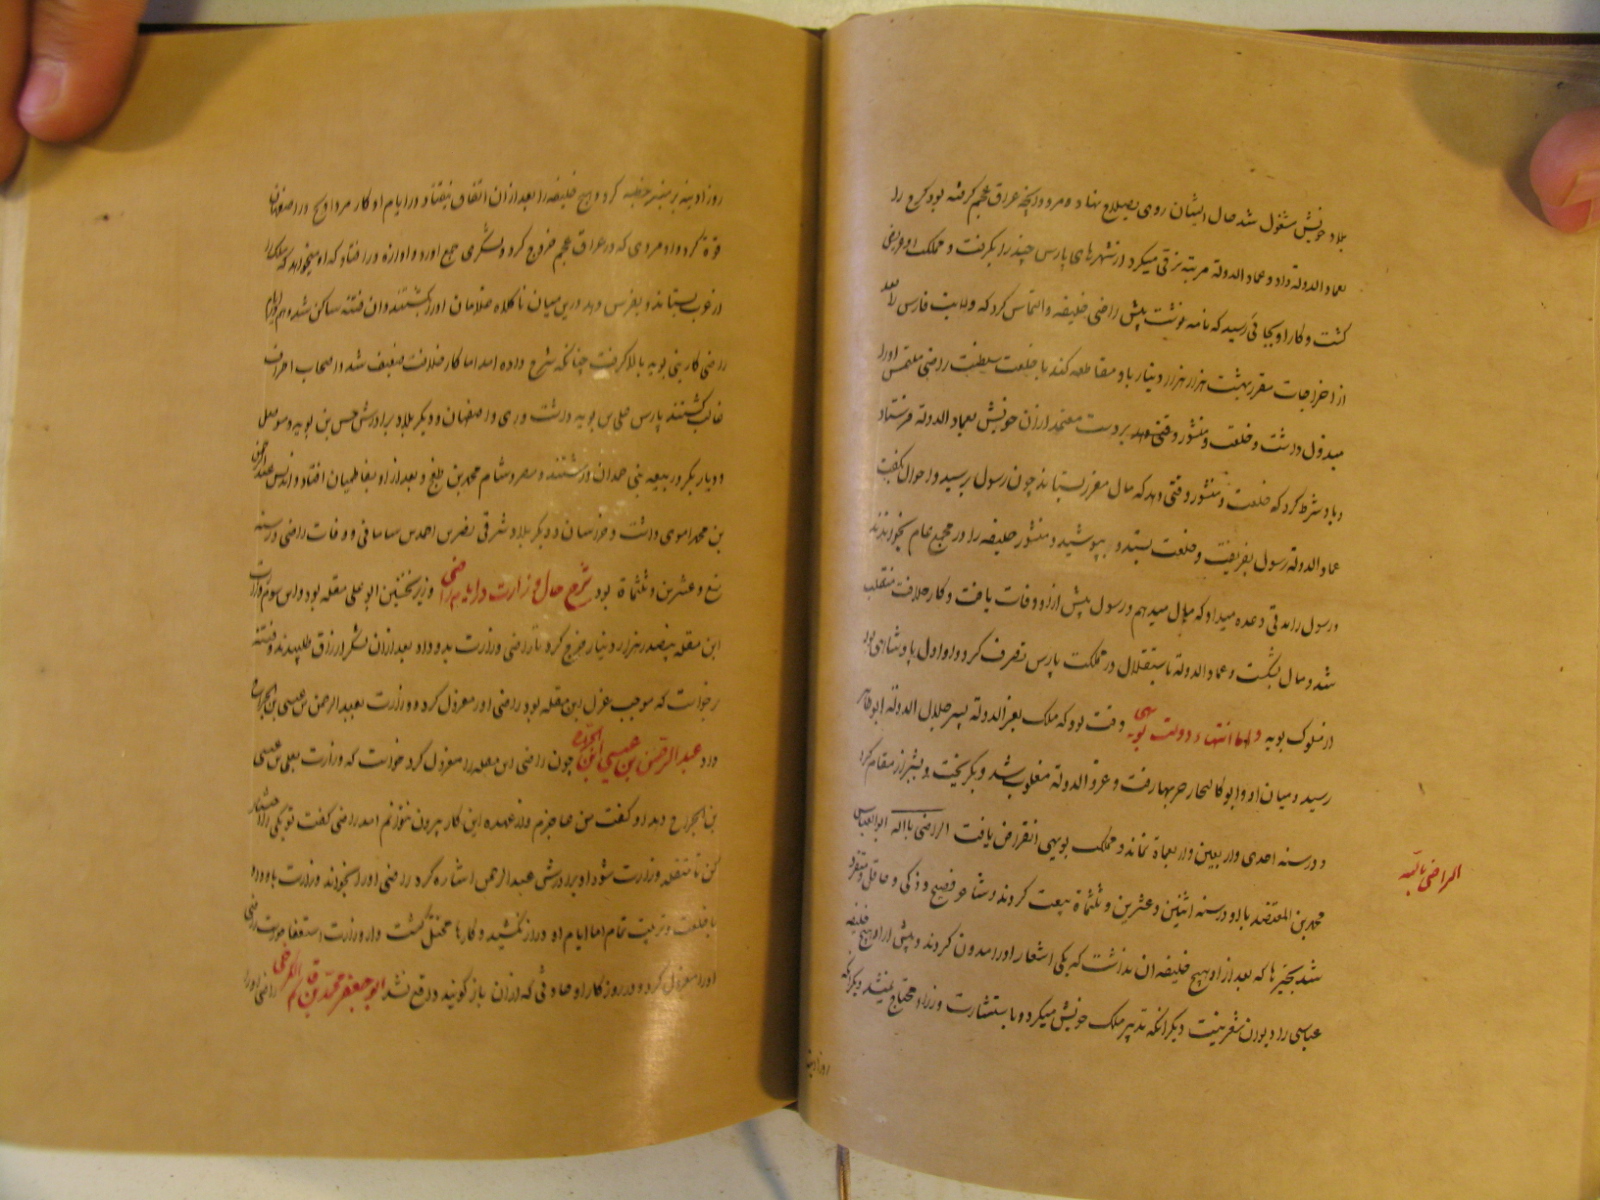 بلاد خویش مشغول شد حال ایشان روی بصلاح نهاد و مردوایج عراق عجم گرفته بود کرج را
بعماد الدولة داد و عماد الدولة مرتبه ترقی میکرد از شهرهای پارس چند را بگرفت و مملکت او عریض
گشت و کار او بجائی رسید که نامه نوشت پیش راضی خلیفه و التماس کرد که ولایت فارس را بعد
از اخراجات مقرر بهشت هزار هزار دینار باو مقاطعه کند با خلعت سلطنت راضی ملتمس او را
مبذول داشت و خلعت و منشور بر دست معتمد از ان خویش بعماد الدولة فرستاد
و باو شرط کرد که خلعت و منشور وقتی دهد که مال مقرر بستاند چون رسول برسید و احوال بگفت
عماد الدولة رسول بفریفت و خلعت بستد و بپوشید و منشور خلیفه را در مجمع عام بخواندند
و رسول را مدتی وعده میداد که مال میدهم و رسول پیش از او وفات یافت و کار خلافت منقلب
شد و مال بشکست و عماد الدولة باستقلال در مملکت پارس تصرف کرد و او اول پادشاهی بود
از ملوک بویه و اما انتهاء دولت بویهی وقت بود که ملک بعز الدولة پسر جلال الدولة ابو طاهر
رسید و میان او و ابو کالیجار حربها رفت و عز الدولة مغلوب شد و بگریخت و بشیراز مقام کرد
و در سنه احدی و اربعین و اربعماة نماند و مملکت بویهی انقراض یافت الراضی بالله ابو العباس
محمد بن المقتدر با او در سنه اثنین و عشرین و ثلثماة بیعت کردند و شاعر و فصیح و ذکی و عاقل و متفرد
الراضی بالله
شد بچیزها که بعد از او هیچ خلیفه ان نداشت که یکی اشعار او را مدون کردند و پیش از او هیچ خلیفه
عباسی را دیوان شعر نیست دیگر انکه تدبیر ملک خویش میکرد و باستشارت وزراء محتاج نمیشد دیگر انکه
روز ادینه
روز ادینه بر منبر خطبه کرد و هیچ خلیفه را بعد از ان اتفاق نیفتاد در ایام او کار مرداویج در اصفهان
قوة گرد و او مردی که در عراق عجم خروج کرد و لشکری جمع اورد و اوازه در افتاد که او میخواهد که ملک را
از عرب بستاند و بفرس دهد درین میان ناگاه غلامان او را بکشتند و ان فتنه ساکن شد و هم در ایام
راضی کار بنی بویه بالا گرفت چنانکه شرح داده امد اما کار خلافت ضعیف شد و اصحاب اطراف
غالب گشتند پارس علی بن بویه داشت و ری و اصفهان و دیگر بلاد برادرش حسن بن بویه و موصل
و دیار بکر و ربیعه بنی حمدان داشتند و مصر و شام محمد بن طغج و بعد از او بفاطمیان افتاد و اندلس عبد الرحمن
بن محمد اموی داشت و خراسان و دیگر بلاد شرقی نصر بن احمد سامانی و وفات راضی در سنه
تسع و عشرین و ثلثماة بود شرح حال وزارت در ایام راضی وزیر نخستین ابو علی مقله بود و این سوم وزارت
ابن مقله پانصد هزار دینار خرج کرد تا راضی وزارت بدو داد بعد از ان لشکر ارزاق طلبیدند و فتنه
برخواست که موجب عزل ابن مقله بود راضی او را معزول کرد و وزارت بعبد الرحمن بن عیسی بن الجراح
داد عبد الرحمن بن عیسی ابن الجراح چون راضی ابن مقله را معزول کرد خواست که وزارت بعلی بن عیسی
بن الجراح دهد او گفت من عاجزم و از عهده این کار بیرون نتوانم امد راضی گفت تو یکی را اختیار
کن تا متقلد وزارت شود او برادرش عبد الرحمن اشاره کرد راضی او را بخواند و وزارت باو داد
با خلعت و تربیت تمام اما ایام او دراز نکشید و کارها مختل گشت و از وزارت استعفا خواست راضی
او را معزول کرد و در روزگار او حادثی که از ان باز گویند واقع نشد ابو جعفر محمد بن قاسم الکرخی راضی او را